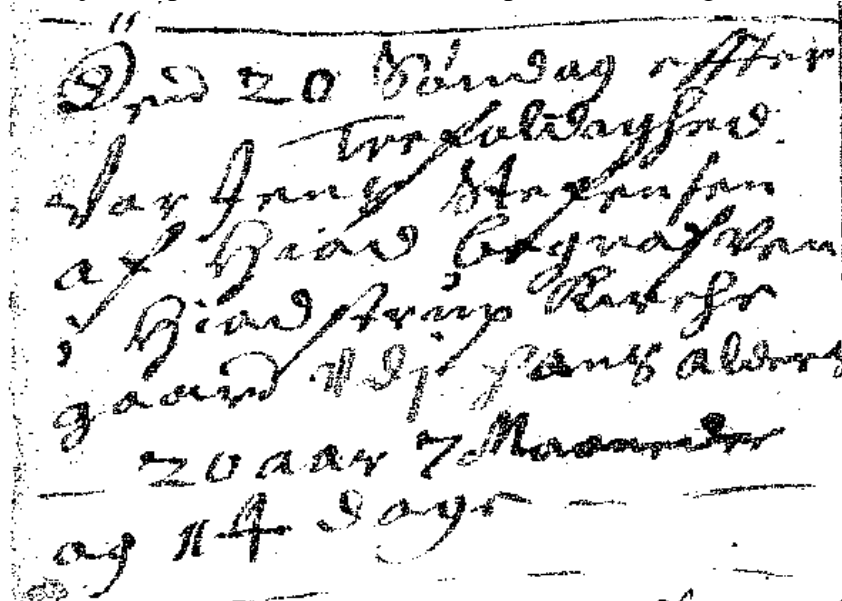 Dend 20 Söndag effter
Trefoldighed
Var Jens Stefensen
af Hiad begrafven
i Hiadstrup Kirche
gaard hans alders
20 aar 7 Maaneder
og 14 dage